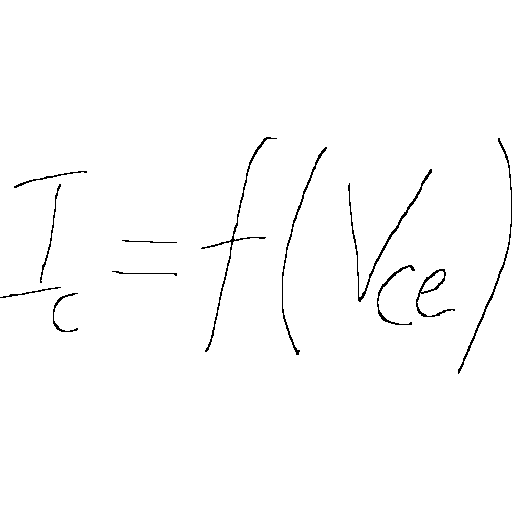 I_c = f(V_ce)